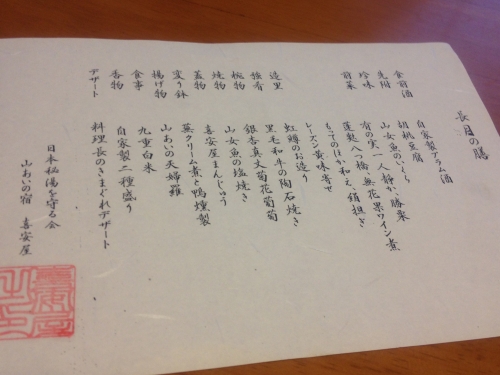 長月の膳
食前酒 自家製プラム酒
先附 胡桃豆腐
珍味 山女魚のいくら
前菜 有の実一人静か、勝栗
蓮麩八つ橋、無花果ワイン煮
もってのほか和え、絹担ぎ
レーズン黄味寄せ
造里 虹鱒のお造り
強肴 黒毛和牛の陶石焼き
椀物 銀杏真丈菊花葡萄
焼物 山女魚の塩焼き
蓋物 喜安屋まんじゅう
変り鉢 蕪クリーム煮と鴨燻製
揚げ物 山あいの天婦羅
食事 九重白米
香物 自家製二種盛り
デザート 料理長のきまぐれデザート
日本秘湯を守る会
山あいの宿 喜安屋